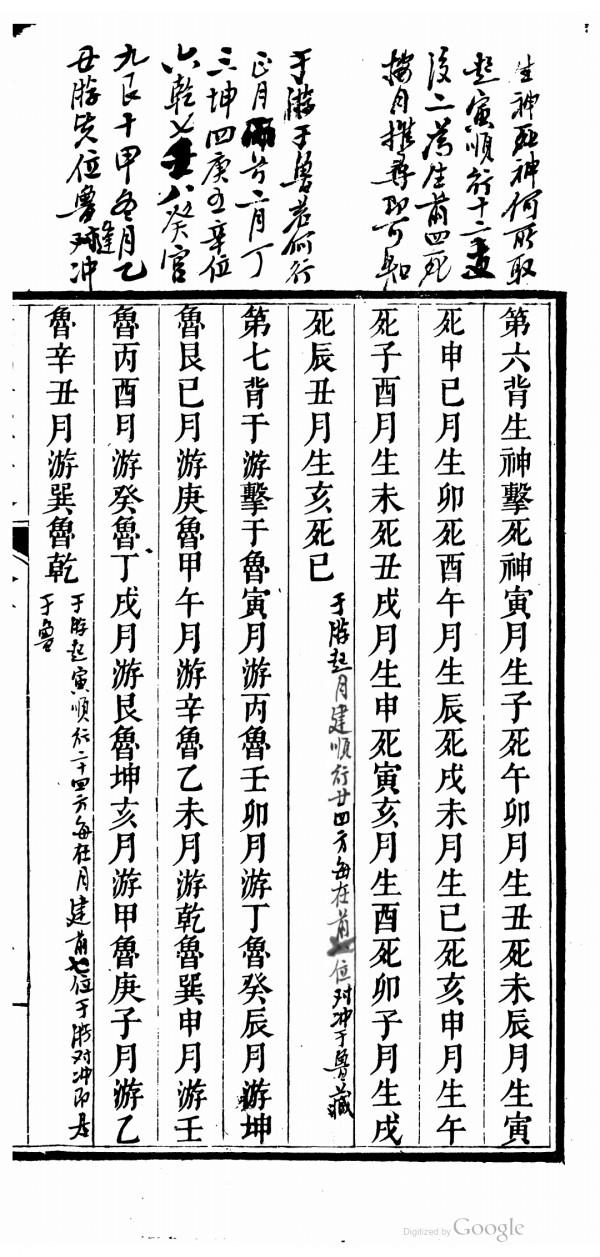 生神死神何所取
起寅順行十二支
後二為生前四死
按月推尋即可知
于游于魯若何行
正月丙兮二月丁
三坤四庚五辛位
六乾七壬八癸宮
九艮十甲冬月乙
丑游巽位魯對冲
第六背生神擊死神寅月生子死午卯月生丑死未辰月生寅
死申巳月生卯死酉午月生辰死戌未月生巳死亥申月生午
死子酉月生未死丑戌月生申死寅亥月生酉死卯子月生戌
死辰丑月生亥死巳
于游起月建順行廿四方每在前位对冲于魯藏
第七背于游擊于魯寅月游丙魯壬卯月游丁魯癸辰月游坤
魯艮巳月游庚魯甲午月游辛魯乙未月游乾魯巽申月游壬
魯丙酉月游癸魯丁戌月游艮魯坤亥月游甲魯庚子月游乙
魯辛丑月游巽魯乾
于游起寅順行二十四方每在月建前七位于游对冲即是
于魯
Digitized by Google